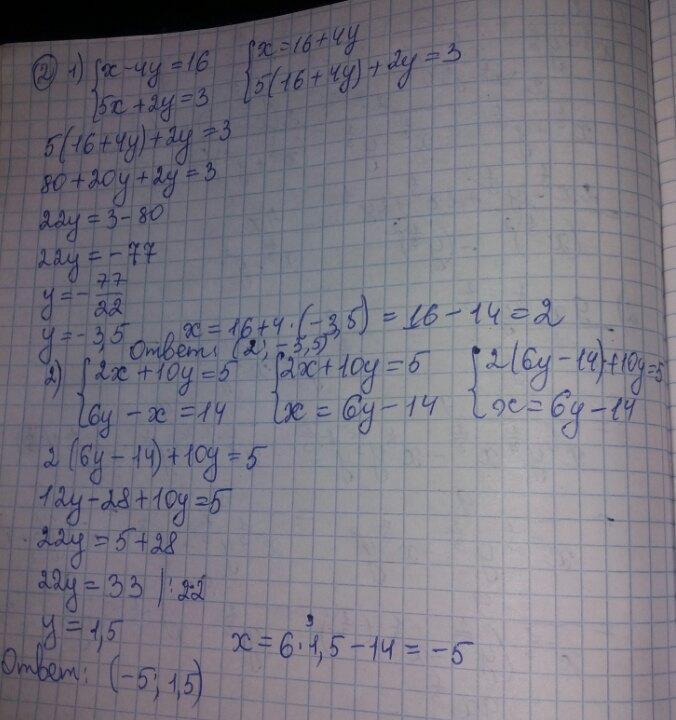 ② 1) { x - 4y = 16 { x = 16 + 4y
5x + 2y = 3 5(16 + 4y) + 2y = 3
5(16 + 4y) + 2y = 3
80 + 20y + 2y = 3
22y = 3 - 80
22y = - 77
y = - 77/22
y = - 3,5 x = 16 + 4 · (-3,5) = 16 - 14 = 2
Ответ: (2; -3,5)
2) { 2x + 10y = 5 { 2x + 10y = 5 { 2(6y - 14) + 10y = 5
6y - x = 14 x = 6y - 14 x = 6y - 14
2(6y - 14) + 10y = 5
12y - 28 + 10y = 5
22y = 5 + 28
22y = 33 | : 22
y = 1,5 x = 6 · 1,5 - 14 = - 5
9
Ответ: (-5; 1,5)